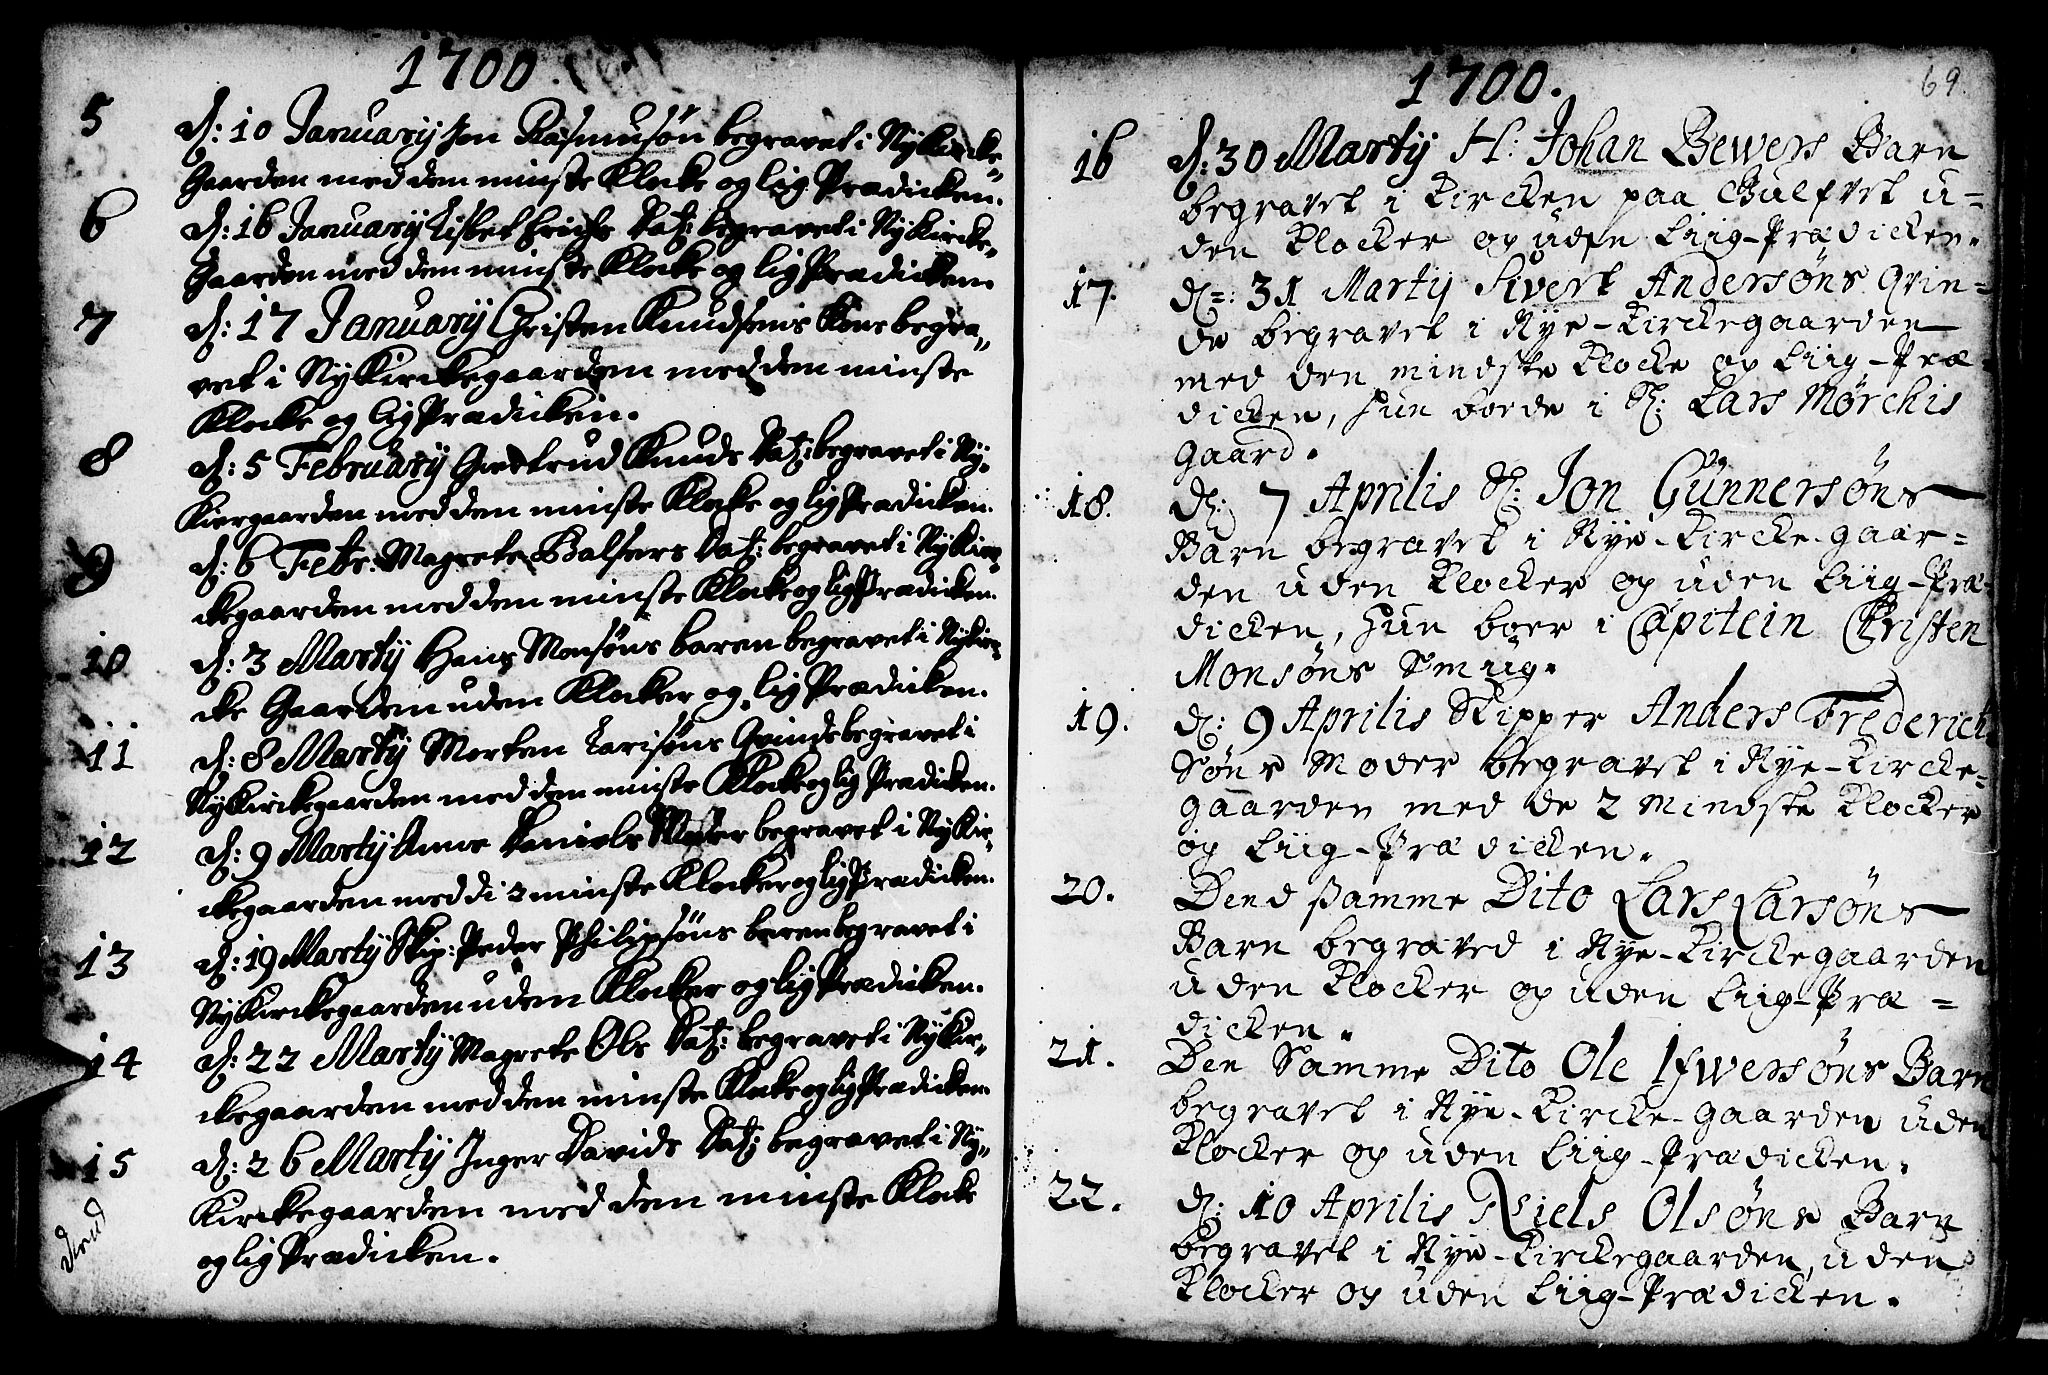 1700.
5 d: 10 Januarij Jon Rasmusøn begravet i Nykircke
Gaarden med den minste Klocke og lig Prædicken.
6 d: 16 Januarij Lisbet Erichs Dat: begravet i Nykircke-
Gaarden med den minste Klocke og lig Prædicken
7 d: 17 Januarij Christen Knudsens Kone begra-
vet i Nykirckegaarden med den minste
Klocke og lig Prædicken.
8 d: 5 Februarij Giertrud Knuds Dat: begravet i Ny-
Kiergaarden med den minste Klocke og lig Prædicken.
9 d: 6 Febr: Magrete Balsers Dat: begravet i Nykir-
ckegaarden med den minste Klocke og lig Prædicken.
10 d: 3 Martij Hans Monsøns baren begravet i Nykir-
cke Gaarden uden Klocker og lig Prædicken.
11 d: 8 Martij Morten Larisøns Qvinde begravet i
Nykirckegaarden med den minste Klocke og lig Prædicken.
12 d: 9 Martij Anne Daniels begravet i Nykir-
ckegaarden med di 2 minste Klocker og lig Prædicken.
13 d: 19 Martij Skip: Peder Philipsøns baren begravet i
Nykirckegaarden uden Klocker og lig Prædicken.
14 d: 22 Martij Magrete Ols Dat: begravet i Nykir-
ckegaarden med den minste Klocke og lig Prædicken.
15 d: 26 Martij Inger Davids Dat: begravet i Ny-
Kirckegaarden med den minste Klocke
og lig Prædicken.
1700.
69
16 d: 30 Martij H: Johan Bewers Barn
begravet i Kircken paa Gulfvet u-
den Klocker og uden Liig-Prædicken.
17. d: 31 Martij Sivert Andersøns Qvin-
de begravet i Nye-Kirckegaarden
med den mindste Klocke og Liig-Præ-
dicken, hun boede i Sl: Lars Mørchis
gaard.
18. d: 7 Aprilis Sl: Jon Gunnersøns
Barn begravet i Nye-Kircke-gaar-
den uden Klocker og uden Liig-Præ-
dicken, hun boer i Capitein Christen
Monsøns Smug.
19. d: 9 Aprilis Skipper Anders Frederich
Søns Moder begravet i Nye-Kircke-
gaarden med de 2 mindste Klocker
og Liig-Prædicken.
20. Dend samme Dito Lars Larsøns
Barn begraved i Nye-Kirckegaarden
uden Klocker og uden Liig-Præ-
dicken.
21. Den Samme Dito Ole Ifwersøns Barn
begravet i Nye-Kircke-gaarden uden
Klocker og uden Liig-Prædicken.
22. d: 10 Aprilis Niels Olsøns Barn
begravet i Nye-Kirckegaarden, uden
Klocker og uden Liig-Prædicken.